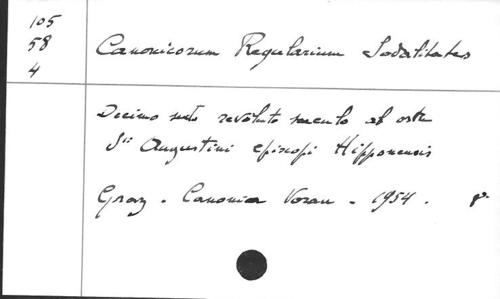 105
58
4
Canonicorum Regularium Sodalitates
Decimo sexto revoluto saeculo ab ortu
Sti Augustini episcopi Hipponensis
Graz - Canonia Vorau - 1954.